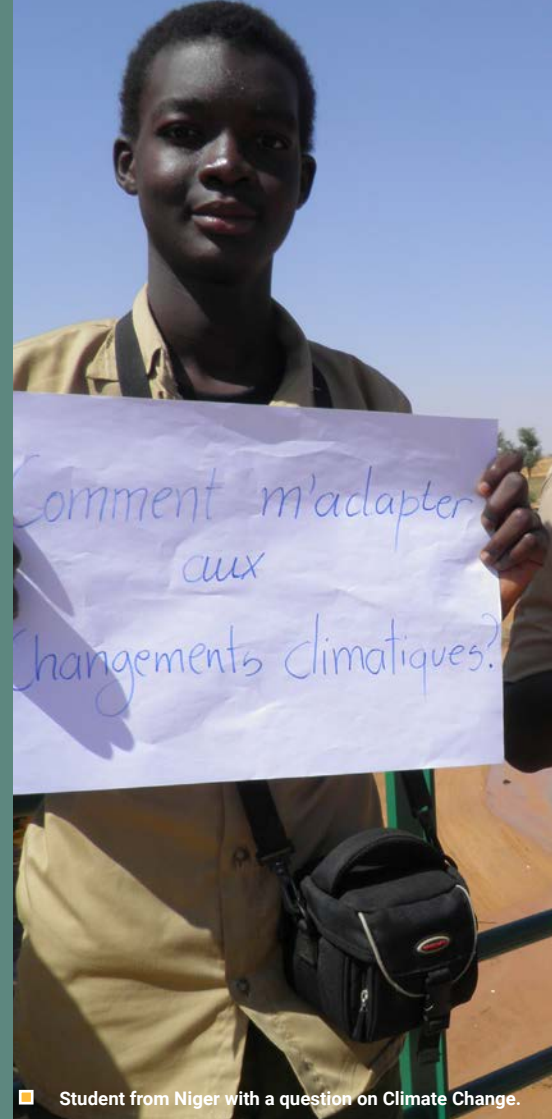 Comment m'adapter
aux
Changements climatiques?
Student from Niger with a question on Climate Change.